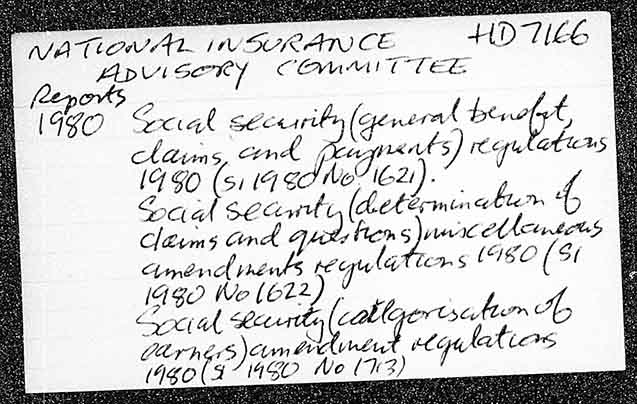 NATIONAL INSURANCE HD7166
ADVISORY COMMITTEE
Reports
1980 Social security (general benefit,
claims, and payments) regulations
1980 (SI 1980 No 1621).
Social security (determination of
claims and questions) miscellaneous
amendments regulations 1980 (SI
1980 No 1622)
Social security (categorisation of
earners) amendment regulations
1980 (SI 1980 No 1713)